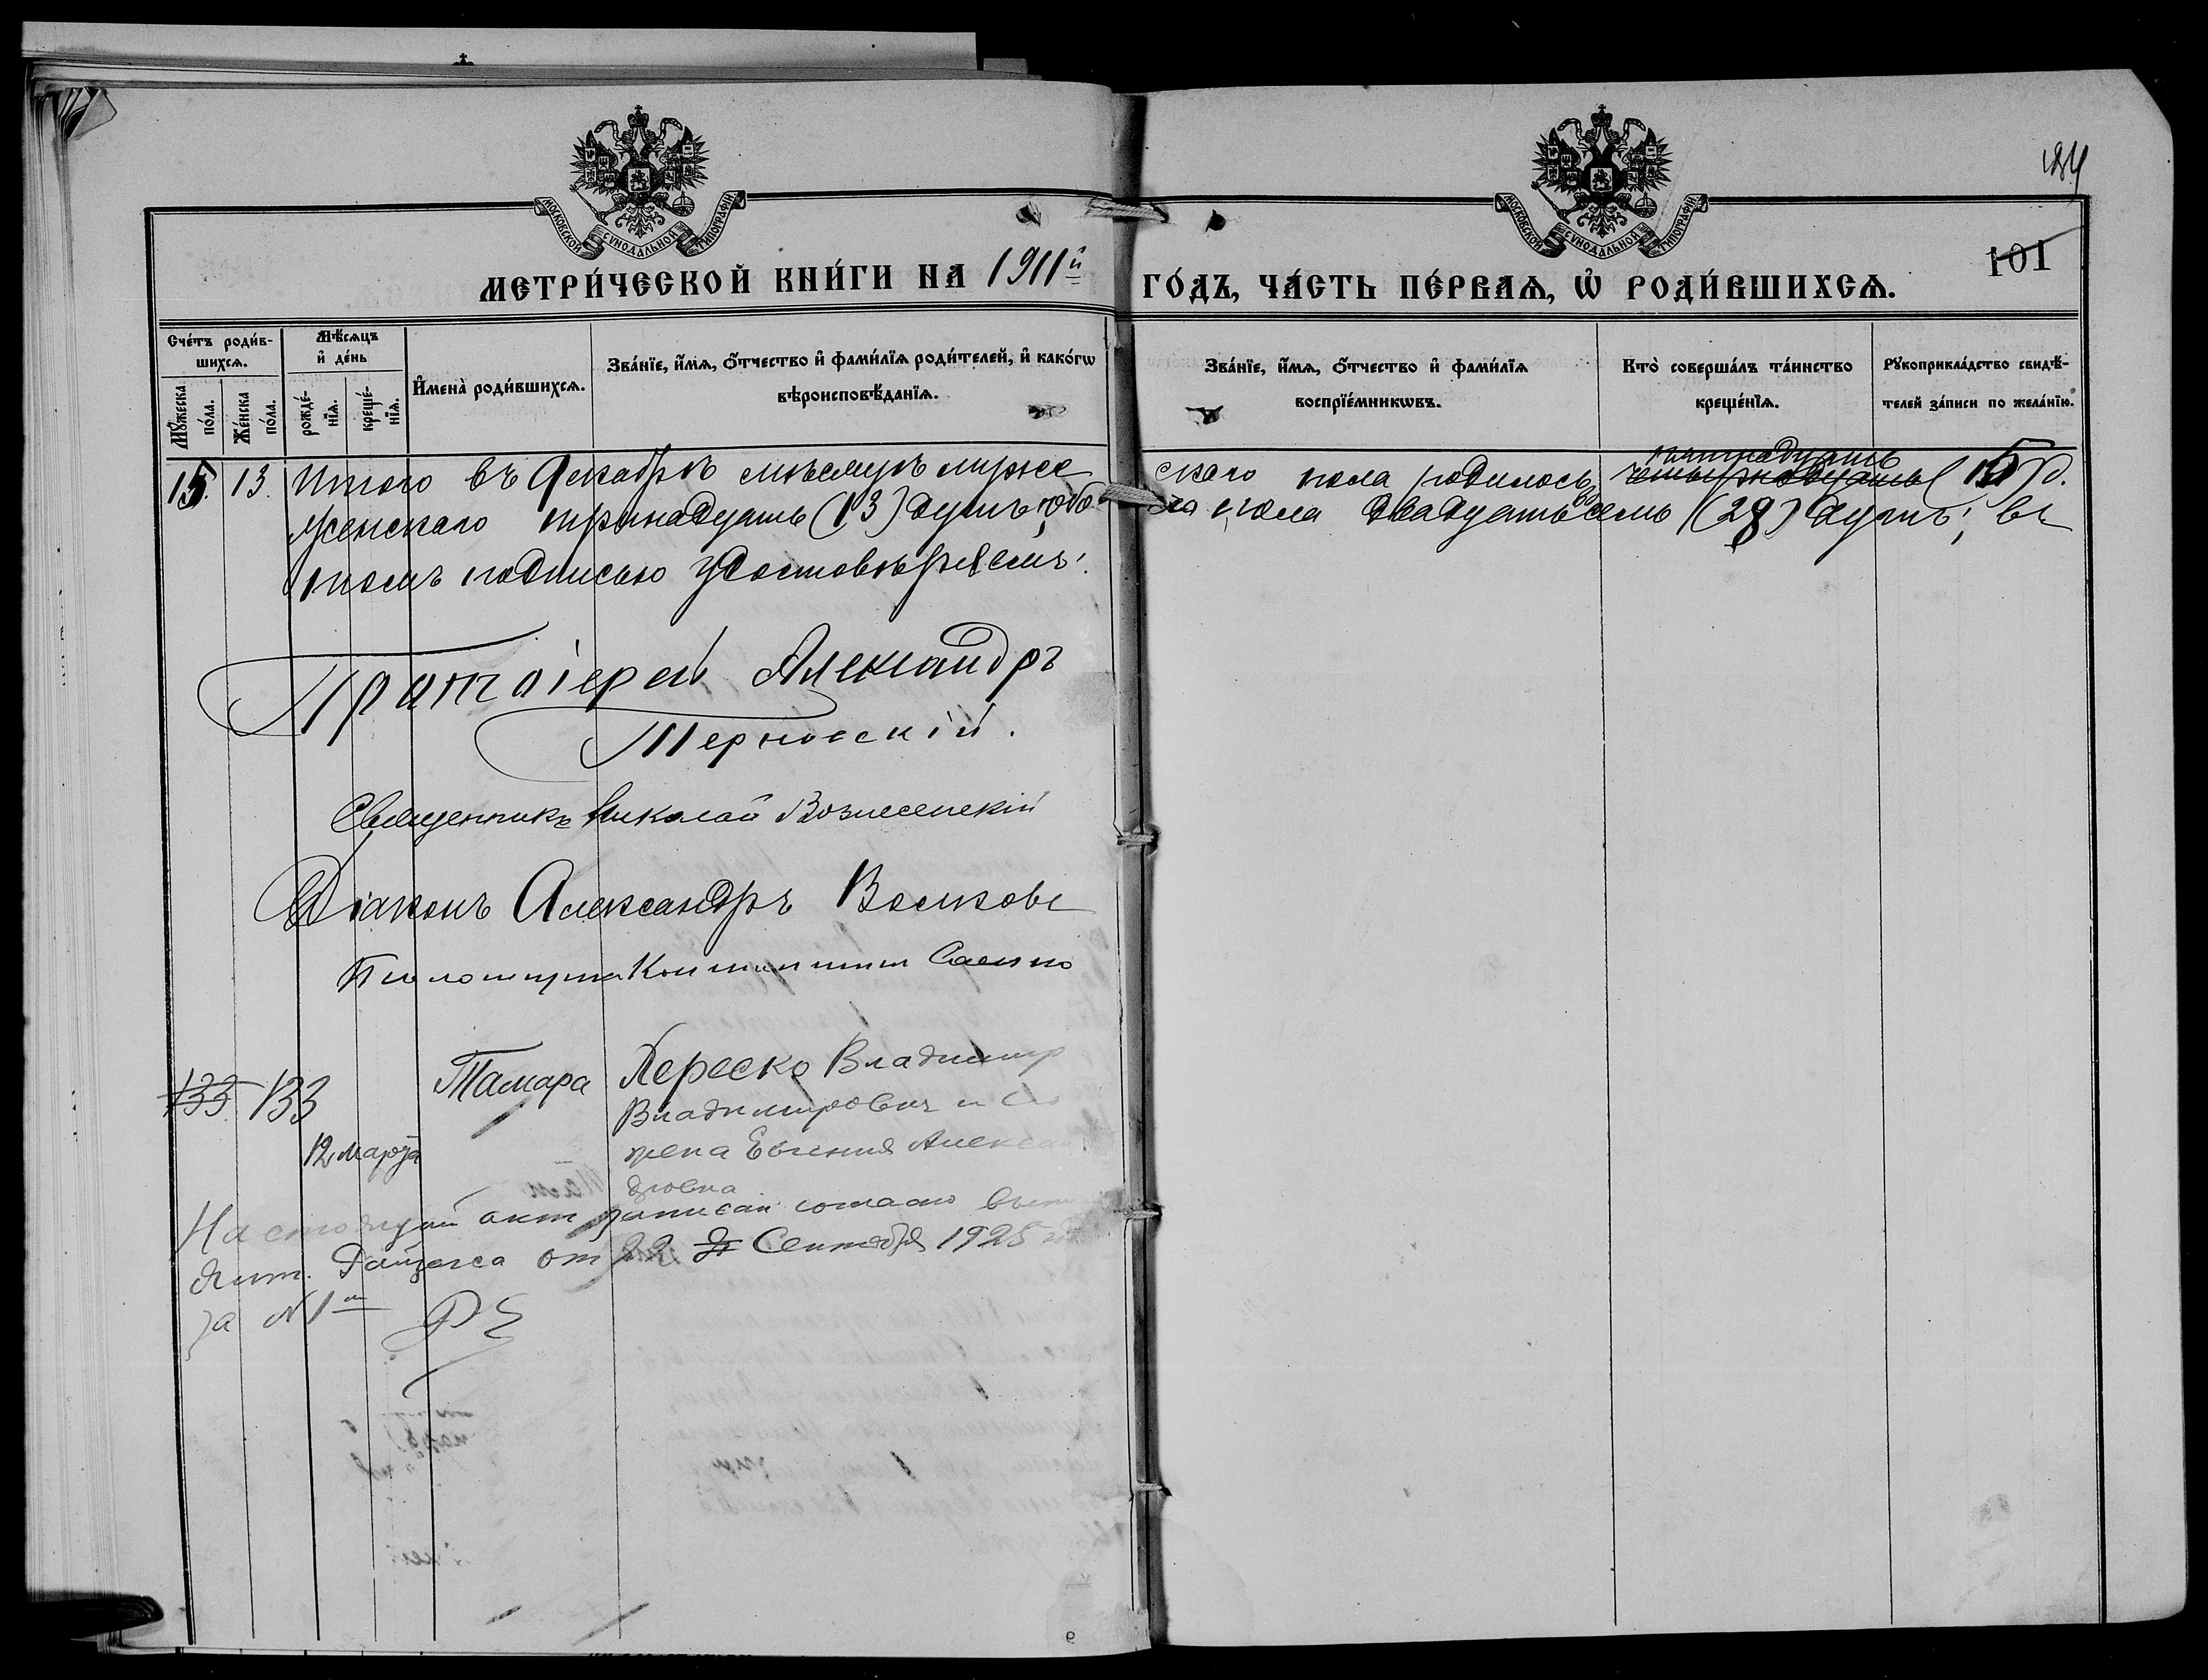 184
101
МОСКОВСКОЙ СѴНОДАЛЬНОЙ ТИПОГРАФІИ
МОСКОВСКОЙ СѴНОДАЛЬНОЙ ТИПОГРАФІИ
МЕТРИ́ЧЕСКОЙ КНИ́ГИ НА 1911й ГО́ДЪ, ЧА́СТЬ ПЕ́РВАѦ, Ѡ҆ РОДИ́ВШИХСѦ.
Сче́тъ роди́в-
шихсѧ.
Мꙋ́жеска по́ла.
Же́нска по́ла.
Мѣ́сѧцъ
и҆ де́нь
рожде́-
нїѧ.
креще́-
нїѧ.
И҆мена̀ роди́вшихсѧ.
Зва́нїе, и҆́мѧ, ѻ҆́тчество и҆ фами́лїѧ роди́телей, и҆ како́гѡ
вѣроисповѣ́данїѧ.
Зва́нїе, и҆́мѧ, ѻ҆́тчество и҆ фами́лїѧ
воспрїе́мникѡвъ.
Кто̀ соверша́лъ та́инство
креще́нїѧ.
Рꙋкоприкла́дство свидѣ́-
телей за́писи по жела́нїю.
пятнадцать
15. 13. Итого въ Декабрѣ мѣсяцѣ мужескаго пола родилось четырнадцать (15) д.
женскаго тринадцать (13) душъ, обоего пола двадцать восемь (28) душъ; въ
томъ подписью удостовѣряемъ:
Протоіерей Александръ
Терновскій.
Священникъ Николай Вознесенскій
Діаконъ Александръ Волковъ
Псаломщикъ
133 133 Тамара Переско Владимир
Владимирович и
12 марта жена Евгения Алексан
дровна
Настоящий акт записан согласно
от 22 Сентября 1925
за № 1